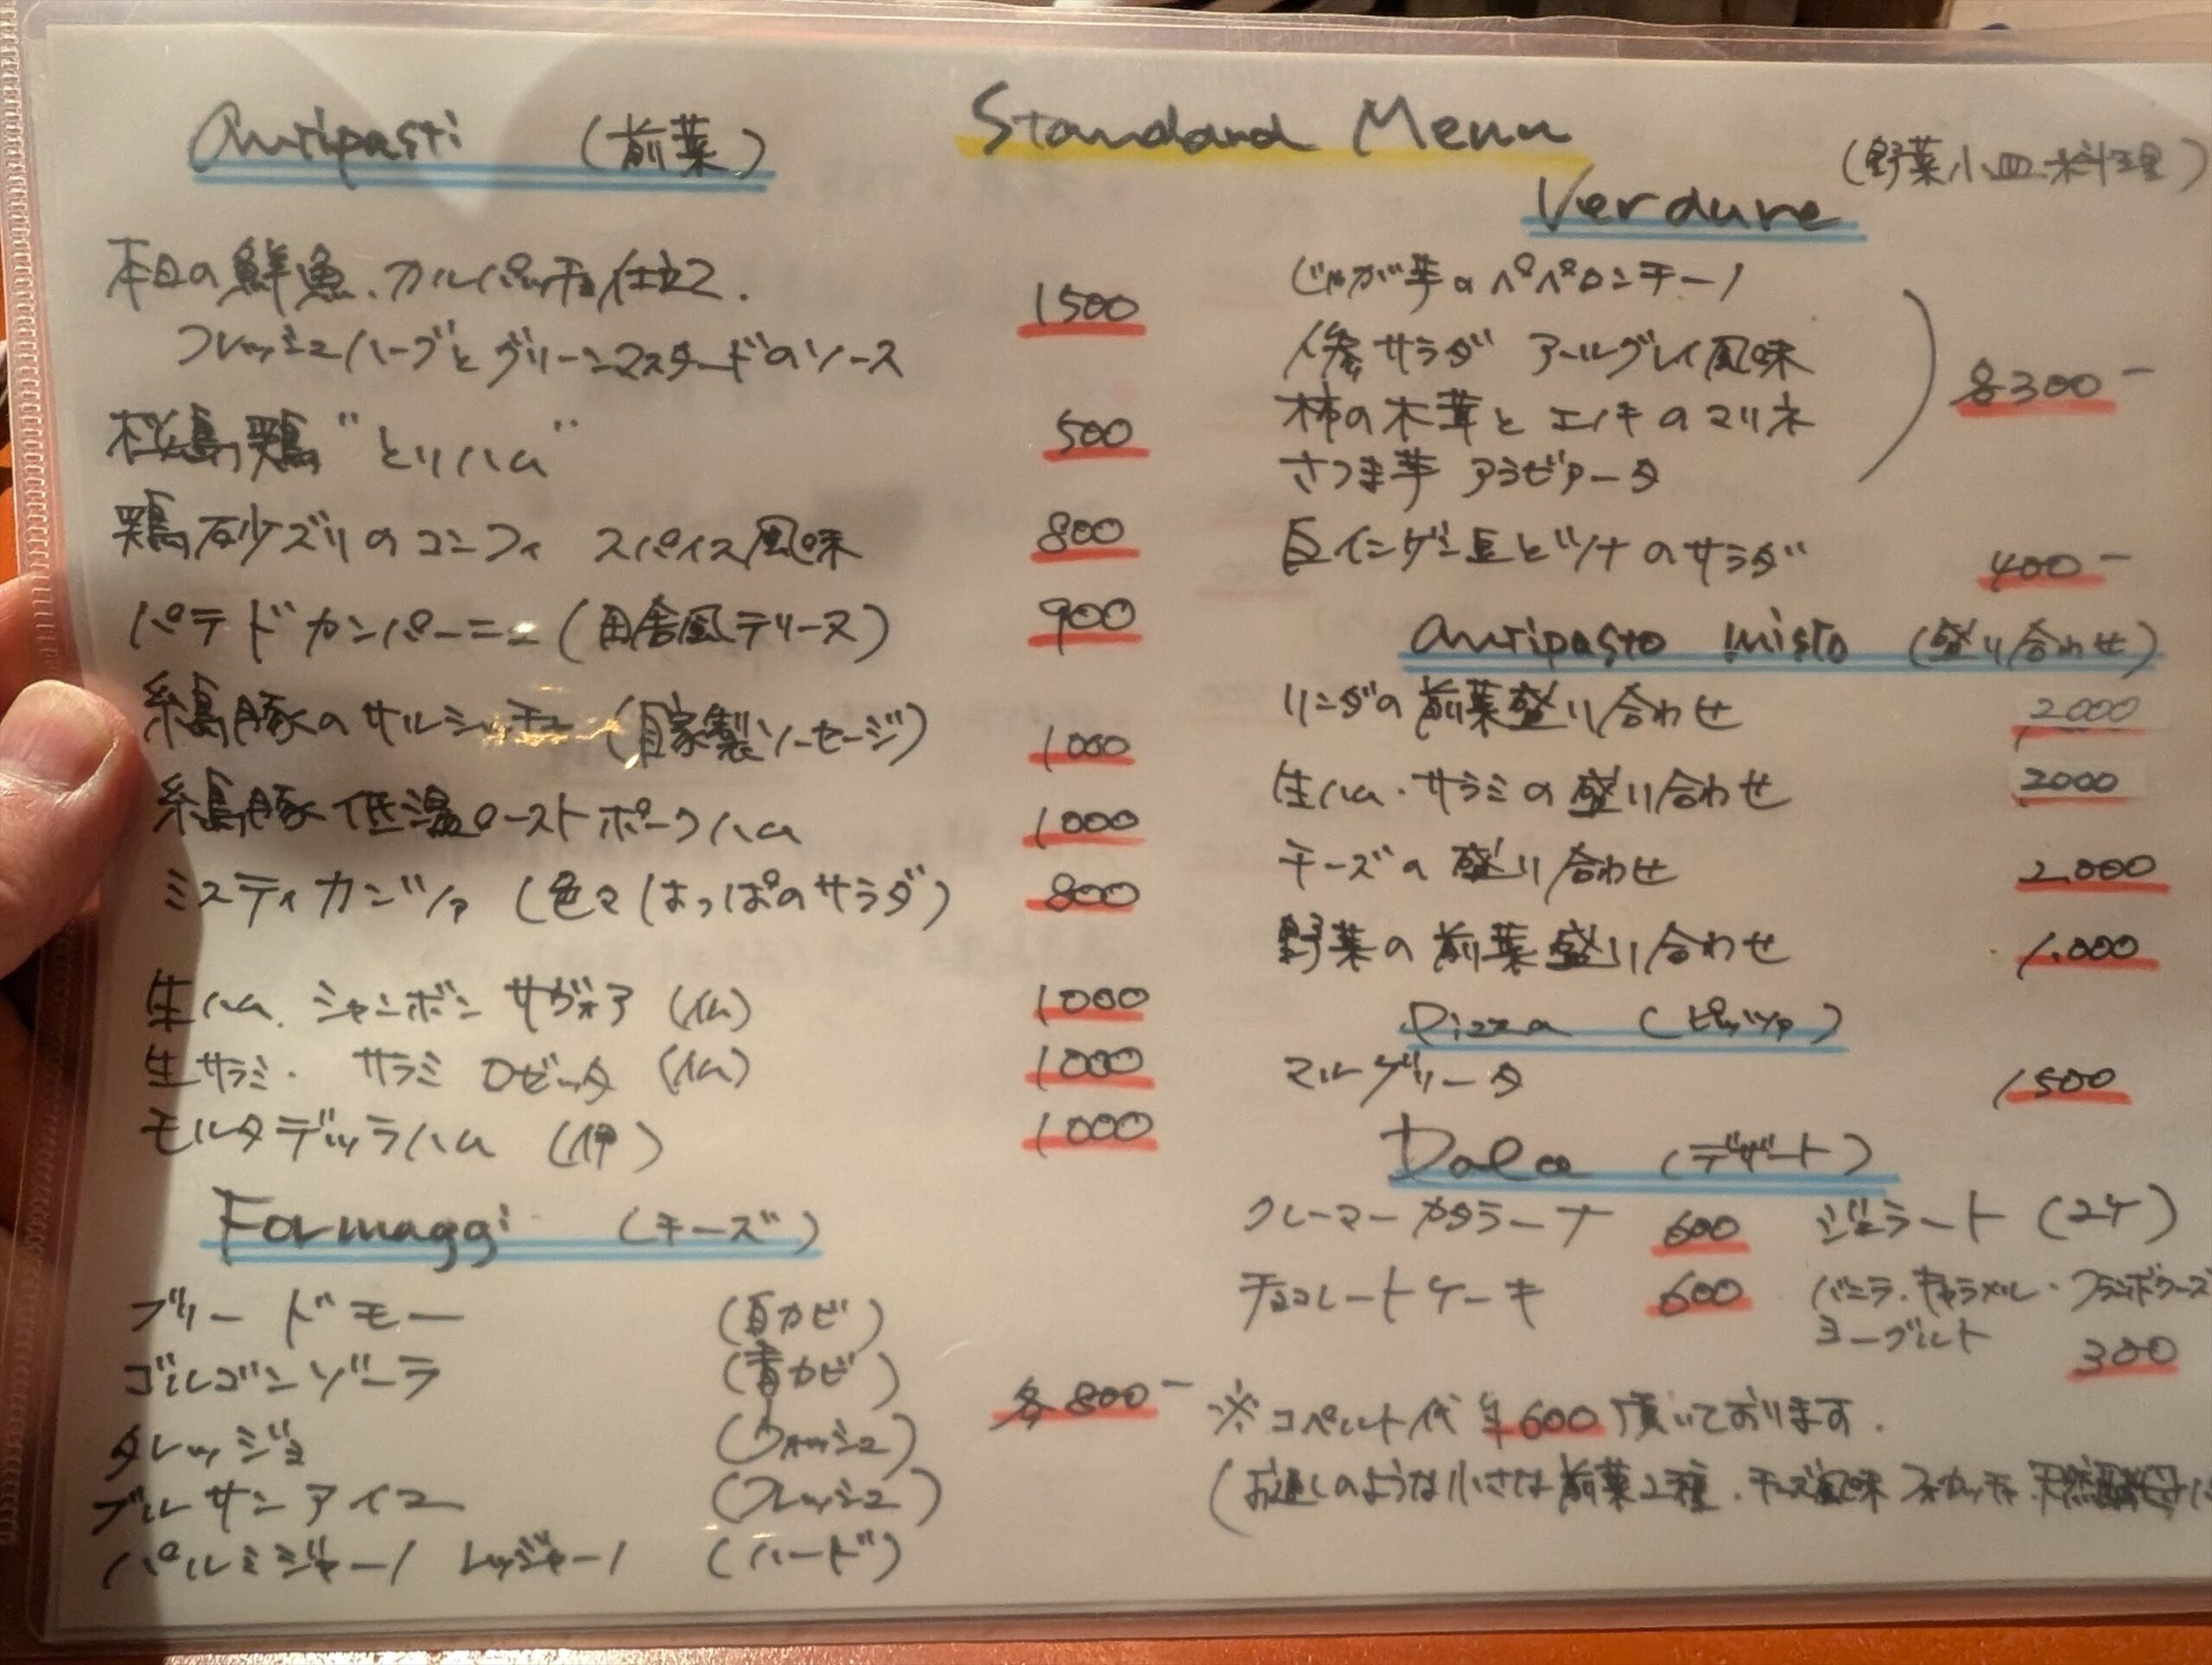 Standard Menu
Antipasti (前菜)
本日の鮮魚、カルパッチョ仕立て.
フレッシュハーブとグリーンマスタードのソース 1500
桜島鶏"とりハム" 500
鶏砂ズリのコンフィ スパイス風味 800
パテ ド カンパーニュ (田舎風テリーヌ) 900
糸島豚のサルシッチャ (自家製ソーセージ) 1000
糸島豚 低温ローストポークハム 1000
ミスティカンツァ (色々はっぱのサラダ) 800
生ハム. ジャンボン サヴォア (仏) 1000
生サラミ. サラミ ロゼッタ (仏) 1000
モルタデッラハム (伊) 1000
Formaggi (チーズ)
ブリー ド モー (白カビ)
ゴルゴンゾーラ (青カビ)
タレッジョ (ウォッシュ)
各800-
ブルサンアイユ (フレッシュ)
パルミジャーノ レッジャーノ (ハード)
Verdure (野菜小皿料理)
じゃが芋のペペロンチーノ
人参サラダ アールグレイ風味
各300-
柿の木茸とエノキのマリネ
さつま芋 アラビアータ
白インゲン豆とツナのサラダ 400-
Antipasto misto (盛り合わせ)
リンダの前菜盛り合わせ 2,000
生ハム・サラミの盛り合わせ 2000
チーズの盛り合わせ 2,000
野菜の前菜盛り合わせ 1,000
Pizza (ピッツァ)
マルゲリータ 1500
Dolce (デザート)
クレーマーカタラーナ 600 ジェラート (2ケ)
チョコレートケーキ 600 バニラ・キャラメル・フランボワーズ
ヨーグルト 300
※コペルト代 ¥600 頂いております.
(お通しのような小さな前菜2種.チーズ風味フォカッチャ.天然酵母